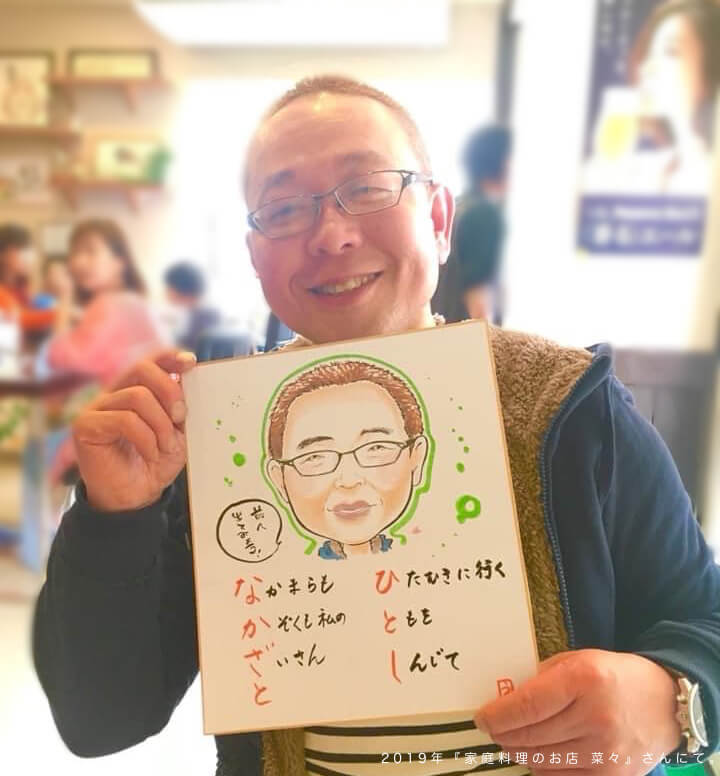 ひたむきに行く
ともを
しんじて
なかまらも
かぞくも私の
ざいさん
と
2019年『家庭料理のお店 菜々』さんにて